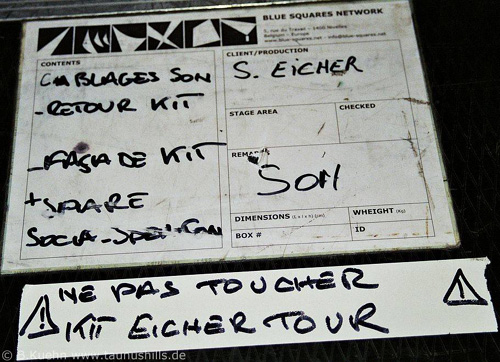 BLUE SQUARES NETWORK
5, rue du Travail - 1400 Nivelles
Belgium - Europe
www.blue-squares.net - info@blue-squares.net
CONTENTS
CABLAGES SON
-RETOUR KIT
-FAÇADE KIT
+ SPARE
CLIENT/PRODUCTION
S. EiCHER
STAGE AREA
CHECKED
REMARKS
SON
DIMENSIONS (L x l x h) (cm)
WHEIGHT (Kg)
BOX #
ID
NE PAS TOUCHER
KIT EICHER TOUR
© B.Kuehn www.taunushills.de